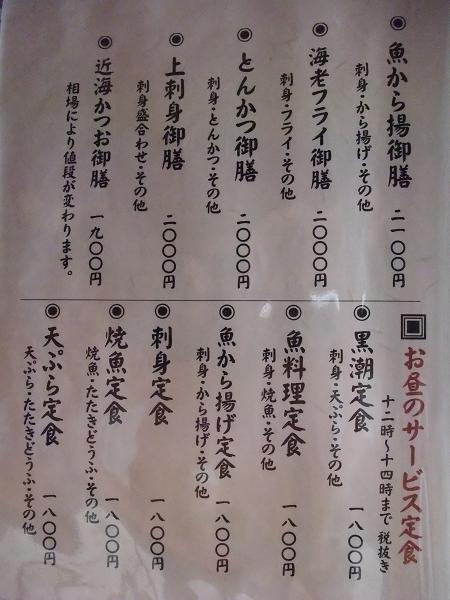 ◉魚から揚御膳 二一〇〇円
刺身・から揚げ・その他
◉海老フライ御膳 二〇〇〇円
刺身・フライ・その他
◉とんかつ御膳 二〇〇〇円
刺身・とんかつ・その他
◉上刺身御膳 二〇〇〇円
刺身盛合わせ・その他
◉近海かつお御膳 一九〇〇円
相場により値段が変わります。
お昼のサービス定食
十二時〜十四時まで 税抜き
◉黒潮定食 一八〇〇円
刺身・天ぷら・その他
◉魚料理定食 一八〇〇円
刺身・焼魚・その他
◉魚から揚げ定食 一八〇〇円
刺身・から揚げ・その他
◉刺身定食 一八〇〇円
◉焼魚定食 一八〇〇円
焼魚・たたきどうふ・その他
◉天ぷら定食 一八〇〇円
天ぷら・たたきどうふ・その他